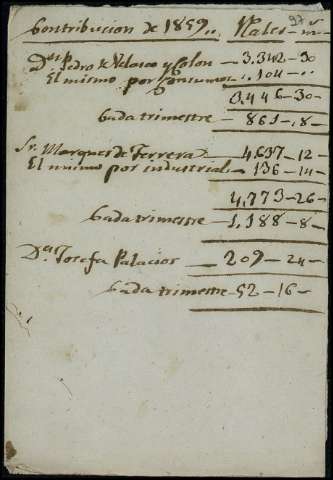 97
Contribucion de 1859.. Rales - m.
Dn. Pedro de Velasco y Colon - 3,342 - 30
El mismo por consumos - 104 -
3,446 - 30 -
Cada trimestre - 861 - 8 -
Sr. Marques de Ferrera - 4,637 - 12 -
El mismo por industrial - 136 - 14 -
4,773 - 26 -
Cada trimestre - 1,188 - 8 -
Da. Josefa Palacios - 209 - 24 -
Cada trimestre - 52 - 16 -